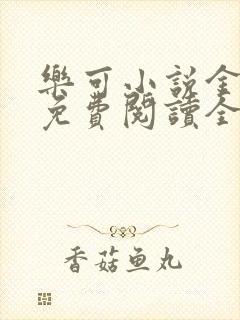 樂可小說全
免費閱讀全
香菇鱼丸